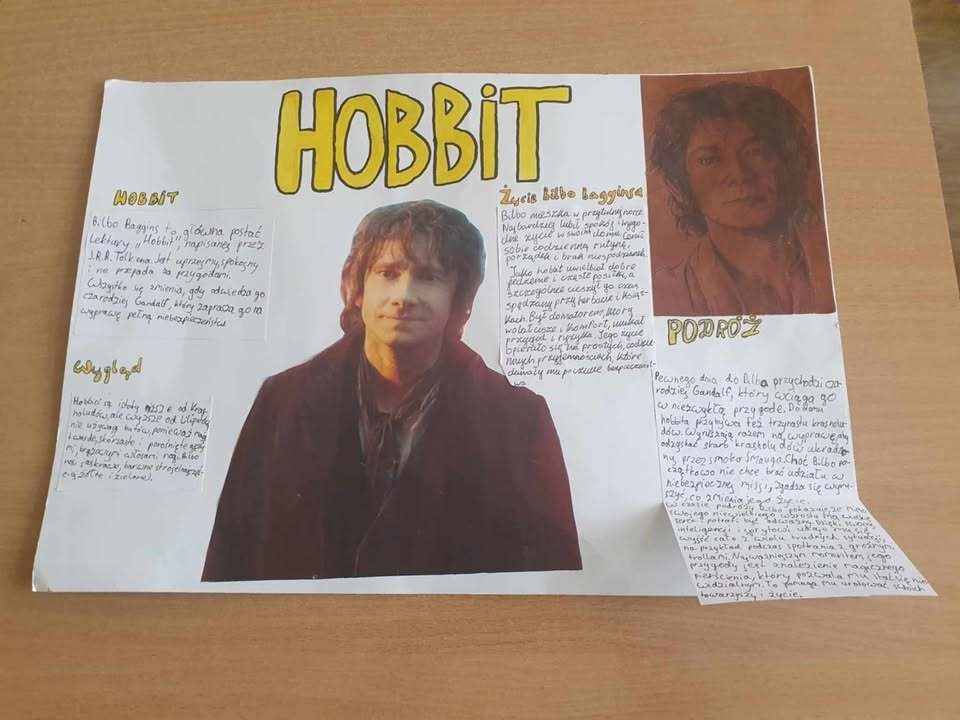 HOBBiT
HOBBiT
Bilbo Baggins to główna postać
Lektury „Hobbit” napisanej przez
J.R.R. Tolkiena. Jest uprzejmy, spokojny
i nie przepada za przygodami.
Wszystko się zmienia, gdy odwiedza go
czarodziej Gandalf, który zaprasza go na
wyprawę pełną niebezpieczeństw
Wygląd
Hobbici są istotą niższe od Kras
noludów, ale wyższe od Liliputów
nie używają butów, ponieważ mają
twarde, skórzaste i porośnięte gęsty
mi, brązowymi włosami nogi. Bilbo
nosi jaskrawe, barwne stroje
(żółte i zielone).
Życie bilbo bagginsa
Bilbo mieszka w przytulnej norze.
Najbardziej lubił spokój i wygo-
dne życie w swoim domu. Cenił
sobie codzienną rutynę,
porządek i brak niespodzianek.
Jako hobbit uwielbiał dobre
jedzenie i częste posiłki, a
szczególnie cieszył go czas
spędzany przy herbacie i książ-
kach. Był domatorem, który
wolał ciszę i komfort, unikał
przygód i ryzyka. Jego życie
opierało się na prostych, codzie
nnych przyjemnościach, które
dawały mu poczucie bezpieczeńst
wa.
PODRÓŻ
Pewnego dnia do Bilba przychodzi cza
rodziej Gandalf, który wciąga go
w niezwykłą przygodę. Do domu
hobbita przybywa też trzynastu krasnolu-
dów. Wyruszają razem na wyprawę, aby
odzyskać skarb krasnoludów ukradzio
ny przez smoka Smauga. Choć Bilbo po-
czątkowo nie chce brać udziału w
niebezpiecznej misji, zgadza się wyru-
szyć, co zmienia jego życie.
W czasie podróży Bilbo pokazuje, że mimo
swojego niewielkiego wzrostu ma wielkie
serce i potrafi być odważny. Dzięki swojej
inteligencji i sprytowi udaje mu się
wyjść cało z wielu trudnych sytuacji,
na przykład podczas spotkania z groźnymi
trollami. Najważniejszym momentem jego
przygody jest znalezienie magicznego
pierścienia, który pozwala mu stać się nie
widzialnym. To pomaga mu uratować swoich
towarzyszy i życie.